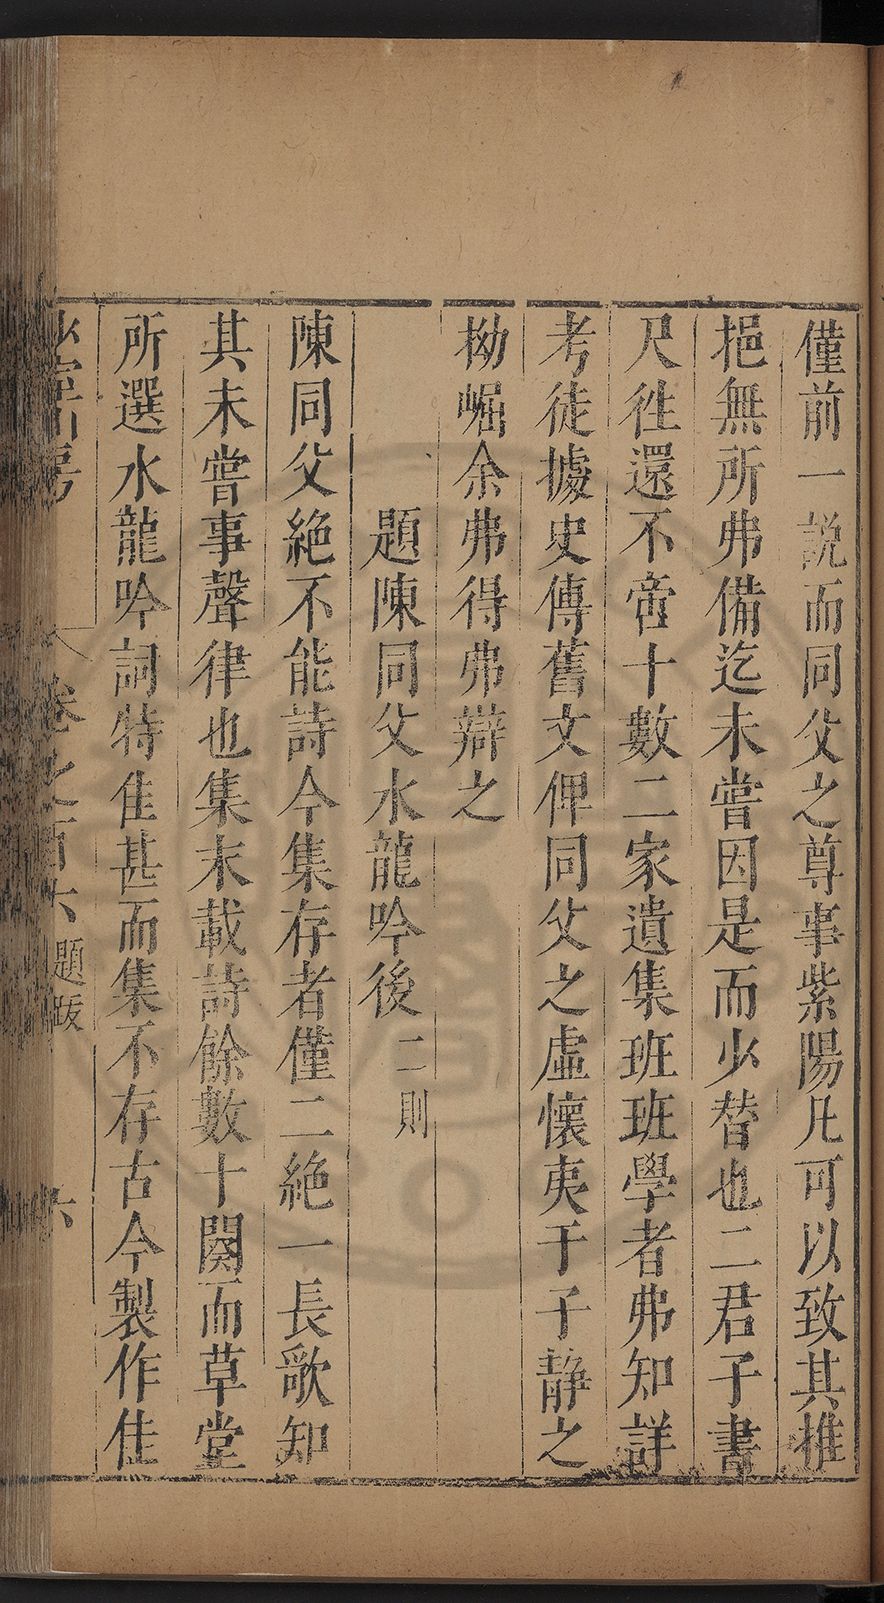 僅前一說而同父之尊事紫陽凡可以致其推
挹無所弗備迄未嘗因是而少替也二君子書
尺徃還不啻十數二家遺集班班學者弗知詳
考徒據史傳舊文俾同父之虛懷夷于子静之
拗崛余弗得弗辯之
題陳同父水龍吟後二則
陳同父絶不能詩今集存者僅二絶一長歌知
其未嘗事聲律也集末載詩餘數十闋而草堂
所選水龍吟詞特佳甚而集不存古今製作佳
卷之百六 題跋 六